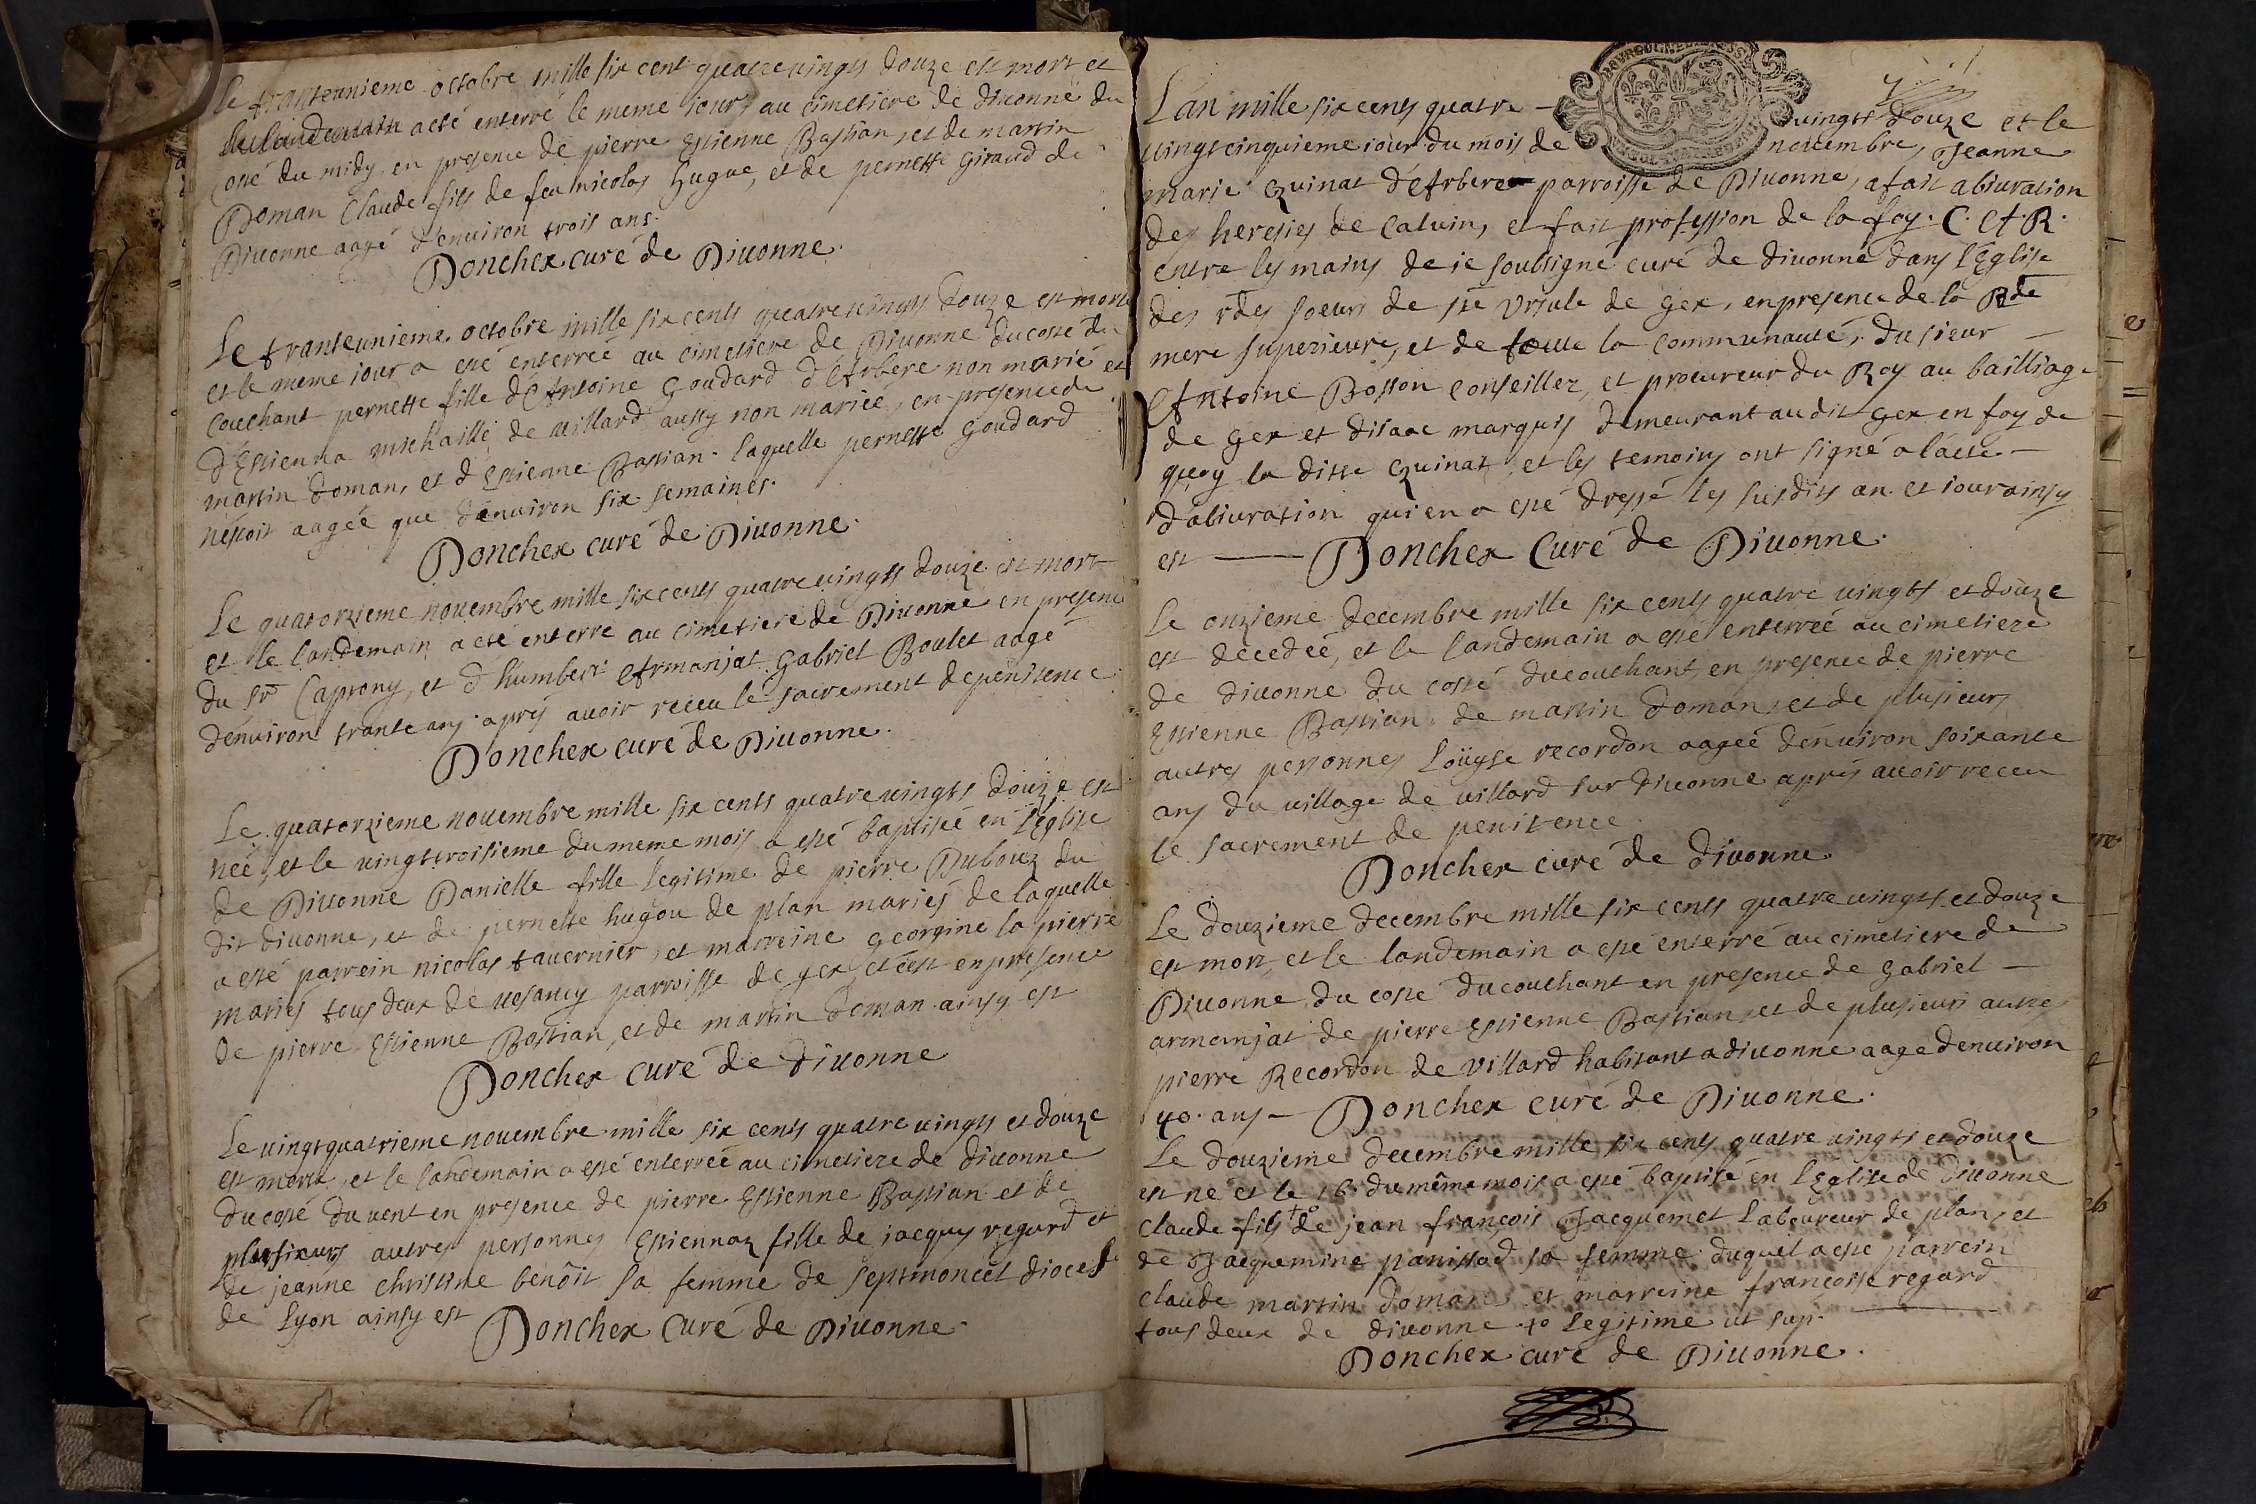 Le tranteunieme octobre mille six cent quatrevingts douze est mort et
a esté enterré le meme iour au cimetiere de diuonne du
costé du midy, en presence de pierre Estienne Bastian, et de martin
Doman Claude fils de feu nicolas hugue, et de pernette Giraud de
Diuonne aagé d'enuiron trois ans.
Donchex curé de Diuonne.
Le tranteunieme octobre mille six cents quatreuingts douze est morte
et le meme iour a esté enterreé au cimetiere de Diuonne du costé du
couchant pernette fille d'Antoine Goudard d'Arbere non marié et
d'Estienna michaille de villard aussy non marieé, en presence de
martin doman, et d'Estienne Bastian. laquelle pernette Goudard
n'estoit aageé que d'enuiron six semaines.
Donchex curé de Diuonne.
Le quatorzieme nouembre mille six cents quatre uingts douze est mort
et le landemain a eté enterré au cimetiere de Diuonne en presence
du Sr Caprony, et d'humbert Armanjat Gabriel Boulet aagé
d'enuiron trante ans apres auoir receu le sacrement de penitence
Donchex curé de Diuonne.
Le quatorzieme nouembre mille six cents quatreuingts douze est
neé, et le uingttroisieme du meme mois a esté baptiseé en l'Eglise
de Diuonne Danielle fille legitime de pierre Dubouz du
dit diuonne, et de pernette hugou de plan mariés de laquelle
a esté parrein nicolas tauernier, et marreine georgine la pierre
mariés tous deux de uesancy parroisse de gex et c'est en presence
de pierre Estienne Bastian, et de martin doman ainsy est
Donchex curé de diuonne
Le uingtquatrieme nouembre mille six cents quatre uingts et douze
est morte, et le landemain a esté enterreé au cimetiere de diuonne
du costé du uent en presence de pierre Estienne Bastian et de
plusieurs autres personnes Estiennaz fille de jacques regard et
de jeanne christine benôit sa femme de septmoncel diocese
de Lyon ainsy est Donchex curé de Diuonne.
L'an mille six cents quatre — uingts douze et le
uingtcinquieme iour du mois de nouembre, Jeanne
marie Quinat d'Arbere parroisse de Diuonne, a fait abiuration
des heresies de Caluin, et fait profession de la foy. C. A. R.
entre les mains de ie soubsigné curé de diuonne dans l'Eglise
des rdes soeurs de ste Ursule de gex, en presence de la Rde
mere superieure, et de toute la communauté, du sieur —
Antoine Bosson conseiller, et procureur du Roy au bailliage
de gex et d'isaac marquis demeurant au dit gex en foy de
quoy la ditte Quinat, et les temoins ont signé a l'acte —
d'abiuration qui en a esté dressé les susdits an et iour ainsy
est — Donchex Curé de Diuonne.
Le onzieme decembre mille six cents quatre uingts et douze
est decedeé, et le landemain a esté enterreé au cimetiere
de diuonne du costé du couchant, en presence de pierre
Estienne Bastian, de martin doman, et de plusieurs
autres personnes Loüyse recordon aageé d'enuiron soixante
ans du uillage de uillard sur diuonne apres auoir receu
le sacrement de penitence.
Donchex curé de diuonne.
Le douzieme decembre mille six cents quatre uingts et douze
est mort, et le landemain a esté enterré au cimetiere de
Diuonne du costé du couchant en presence de gabriel —
armanjat de pierre Estienne Bastian, et de plusieurs autres
pierre Recordon de Villard habitant a diuonne aagé d'enuiron
40. ans — Donchex curé de Diuonne.
Le douzieme decembre mille six cents quatre uingts et douze
est né et le 16. du même mois a esté baptisé en l'Eglise de Diuonne
claude fils +° de jean françois Jacquemet laboureur de plan, et
de Jacquemine panissod sa femme duquel a esté parrein
claude martin doman, et marreine françoise regard
tous deux de diuonne +° legitime ut sup.
Donchex curé de Diuonne.